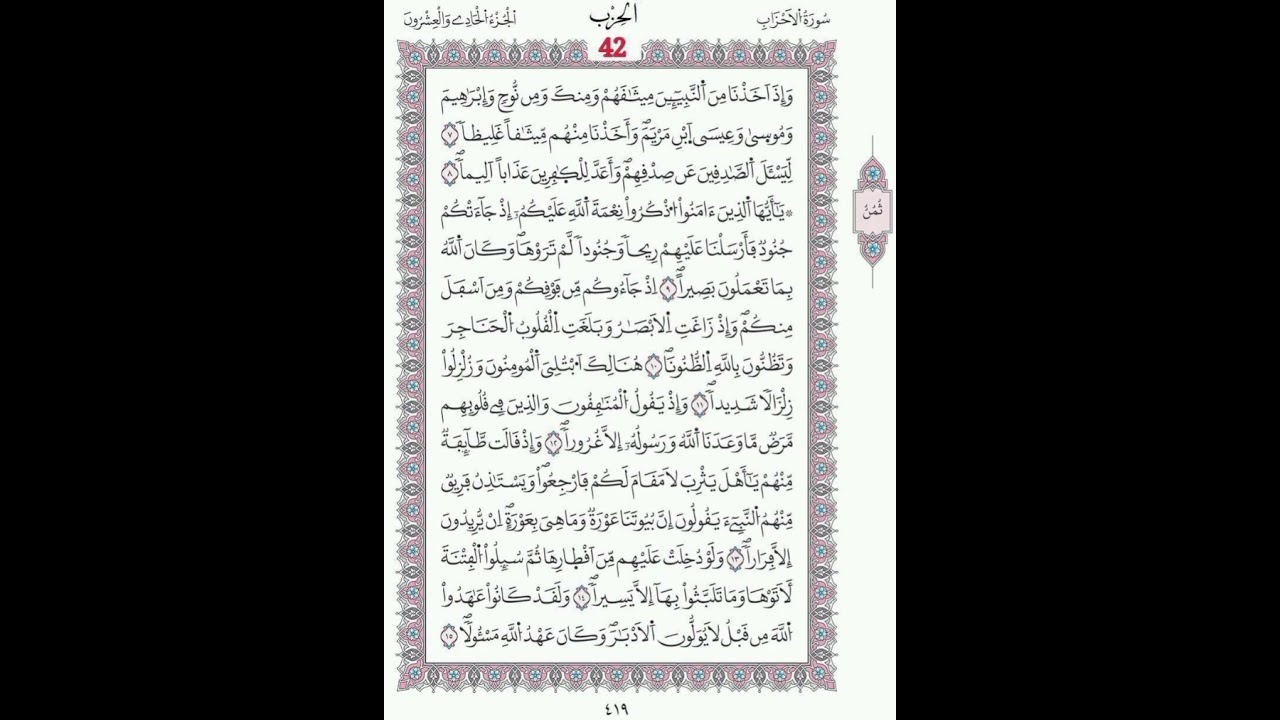 سُورَةُ الْأَحْزَابِ
الْحِزْب
الْجُزْءُ الْحَادِي وَالْعِشْرُونَ
42
وَإِذَ اَخَذْنَا مِنَ اَ۬لنَّبِيٓـِٕۧنَ مِيثَٰقَهُمْ وَمِنكَ وَمِن نُّوحٖ وَإِبْرَٰهِيمَ
وَمُوس۪يٰ وَعِيسَى اَ۪بْنِ مَرْيَمَۖ وَأَخَذْنَا مِنْهُم مِّيثَٰقاً غَلِيظاٗۖ ٧
لِّيَسْـَٔلَ اَ۬لصَّٰدِقِينَ عَن صِدْقِهِمْۖ وَأَعَدَّ لِلْكٰ۪فِرِينَ عَذَاباً اَلِيماٗۖ ٨
۞ يَٰٓأَيُّهَا اَ۬لذِينَ ءَامَنُواْ اُ۟ذْكُرُواْ نِعْمَةَ اَ۬للَّهِ عَلَيْكُمُۥٓ إِذْ جَآءَتْكُمْ
جُنُودٞ فَأَرْسَلْنَا عَلَيْهِمْ رِيحاٗ وَجُنُوداٗ لَّمْ تَرَوْهَاۖ وَكَانَ اَ۬للَّهُ
بِمَا تَعْمَلُونَ بَصِيراًۖ ٩ اِذْ جَآءُوكُم مِّن فَوْقِكُمْ وَمِنَ اَسْفَلَ
مِنكُمْۖ وَإِذْ زَاغَتِ اِ۬لَابْصَٰرُ وَبَلَغَتِ اِ۬لْقُلُوبُ اُ۬لْحَنَاجِرَ
وَتَظُنُّونَ بِاللَّهِ اِ۬لظُّنُونَاۖ ١٠ هُنَالِكَ اَ۟بْتُلِيَ اَ۬لْمُومِنُونَ وَزُلْزِلُواْ
زِلْزَالاٗ شَدِيداٗۖ ١١ وَإِذْ يَقُولُ اُ۬لْمُنَٰفِقُونَ وَالذِينَ فِے قُلُوبِهِم
مَّرَضٞ مَّا وَعَدَنَا اَ۬للَّهُ وَرَسُولُهُۥٓ إِلَّا غُرُوراٗۖ ١٢ وَإِذْ قَالَت طَّآئِفَةٞ
مِّنْهُمْ يَٰٓأَهْلَ يَثْرِبَ لَا مَقَامَ لَكُمْ فَارْجِعُواْۖ وَيَسْتَٰذِنُ فَرِيقٞ
مِّنْهُمُ اُ۬لنَّبِيٓءَ يَقُولُونَ إِنَّ بُيُوتَنَا عَوْرَةٞ وَمَا هِيَ بِعَوْرَةٍۖ اِنْ يُّرِيدُونَ
إِلَّا فِرَاراٗۖ ١٣ وَلَوْ دُخِلَتْ عَلَيْهِم مِّنَ اَقْطٰ۪ارِهَا ثُمَّ سُئِلُواْ اُ۬لْفِتْنَةَ
لَأَتَوْهَا وَمَا تَلَبَّثُواْ بِهَآ إِلَّا يَسِيراٗۖ ١٤ وَلَقَدْ كَانُواْ عَٰهَدُواْ
اُ۬للَّهَ مِن قَبْلُ لَا يُوَلُّونَ اَ۬لَادْبَٰرَۖ وَكَانَ عَهْدُ اُ۬للَّهِ مَسْـُٔولاٗۖ ١٥
ثُمُنُ
٤١٩